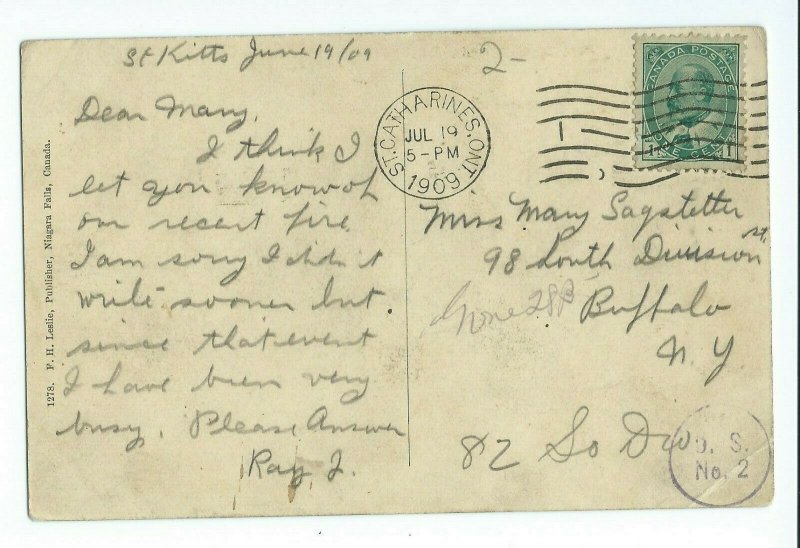 St Kitts June 19/09
Dear Mary,
I think I
let you know of
our recent fire
I am sorry I didn't
write sooner but
since that event
I have been very
busy. Please Answer
Ray J.
1278. F. H. Leslie, Publisher, Niagara Falls, Canada.
2-
ST. CATHARINES. ONT
JUL 19
5-PM
1909
CANADA POSTAGE
ONE CENT
1 1
Miss Mary Sagstetter
98 South Division st.
Buffalo
N. Y
82 So Div
D. S.
No. 2